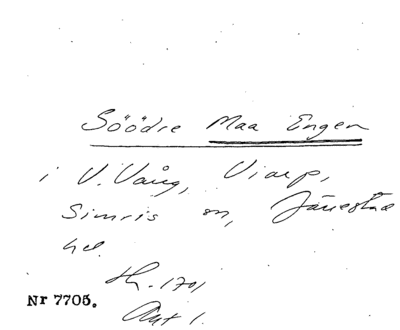 Söödre Maa Engen
i V. Vång, Viarp,
Simris sn, Järrestad
hd.
Lh. 1701
Akt 1.
Nr 7705.